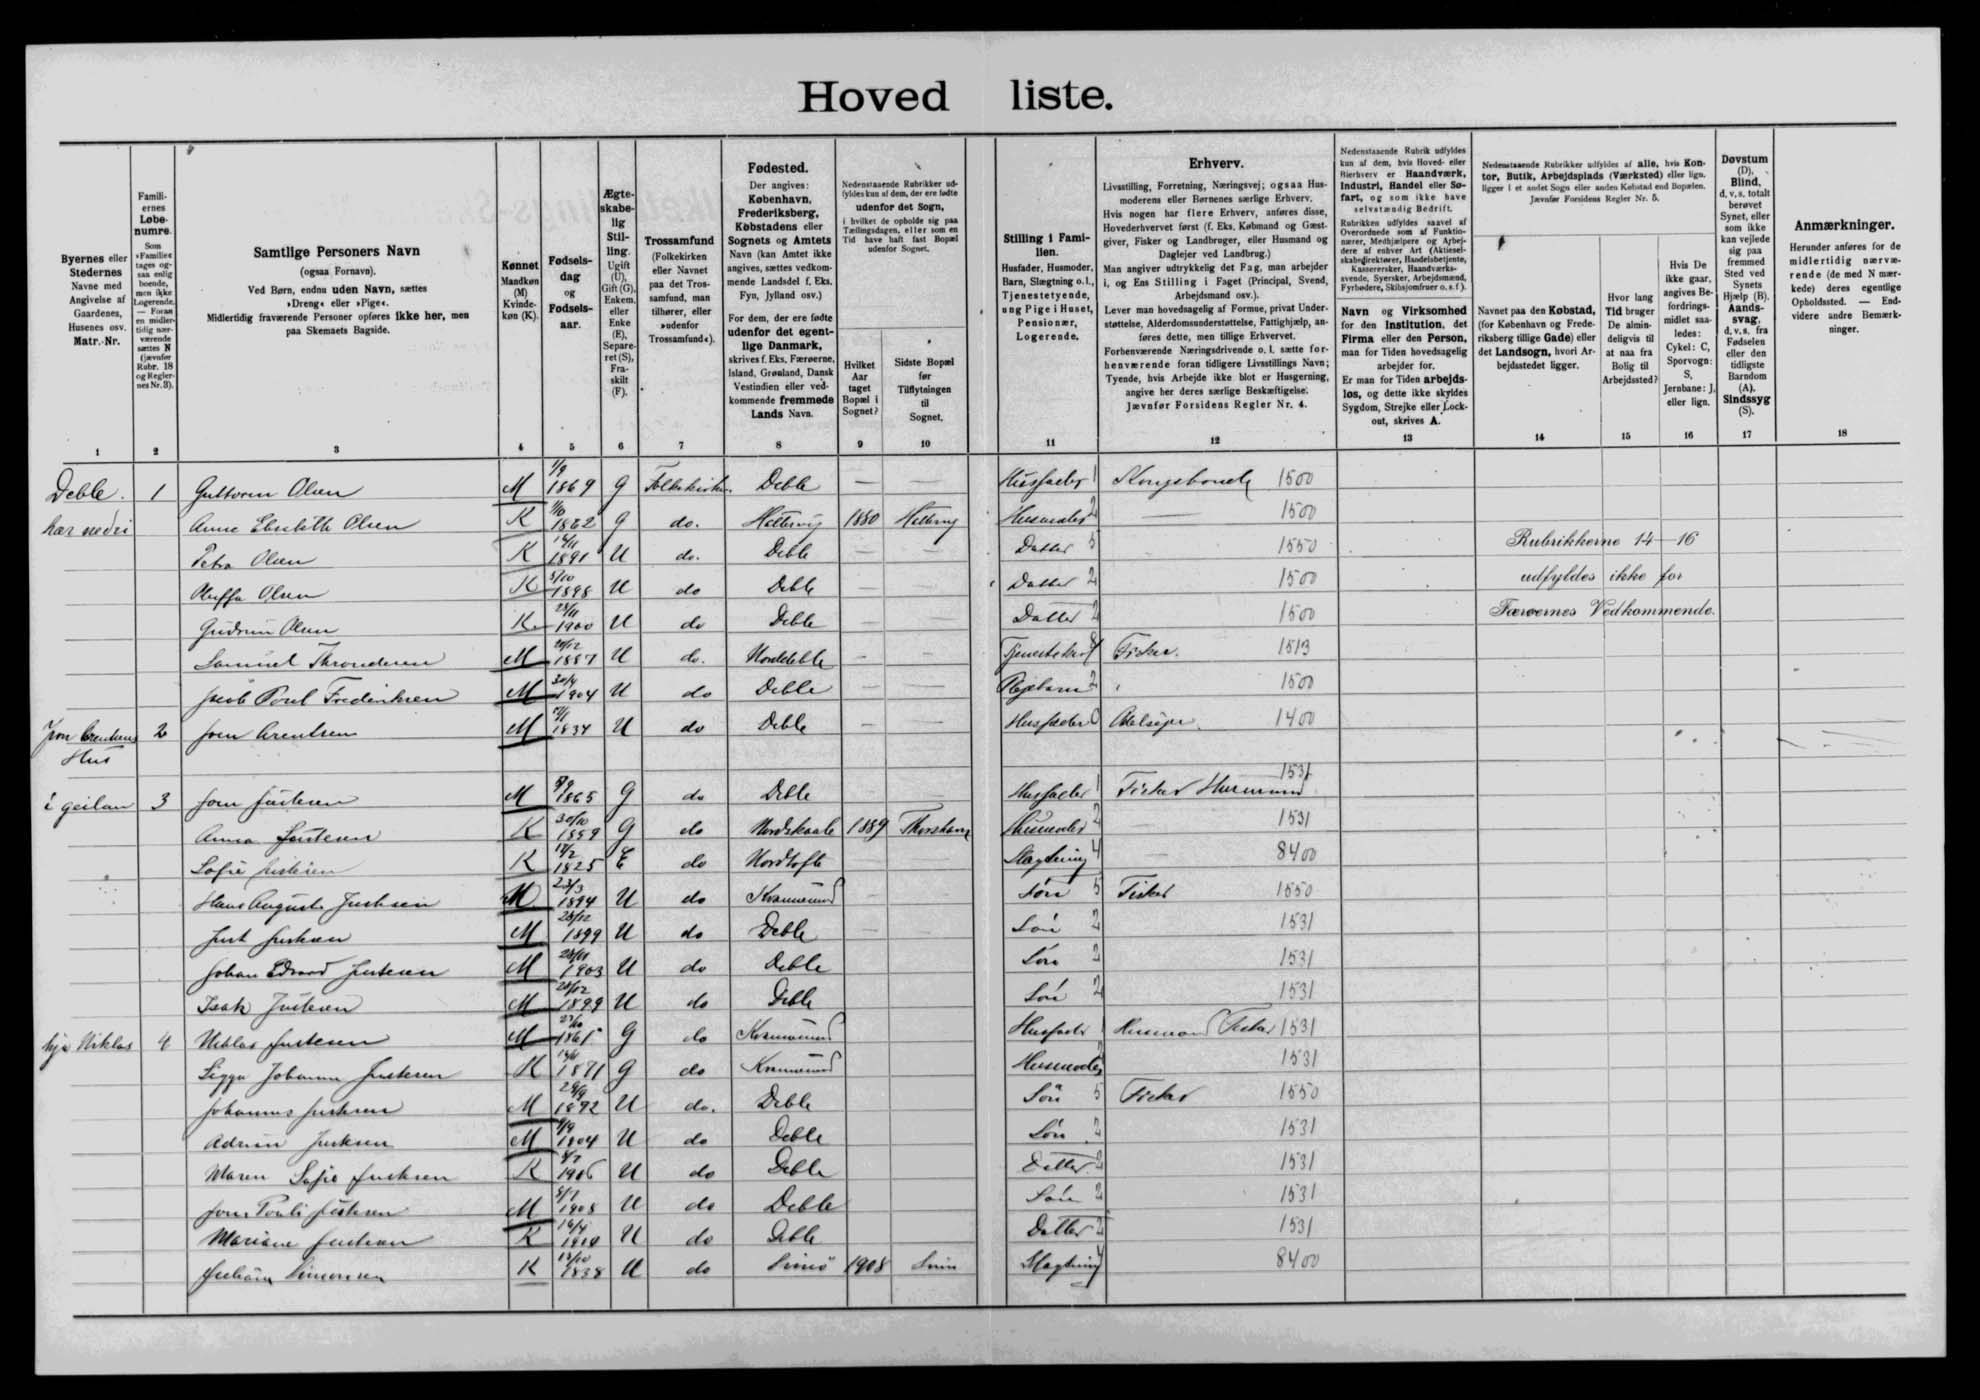 Hoved liste.
Byernes eller Stedernes Navne med Angivelse af Gaardenes, Husenes osv. Matr.-Nr.
Famili-ernes Løbe-numre.
Som »Familie« tages og-saa enlig boende, men ikke Logerende. — Foran en midler-tidig nær-værende sættes N (jævnfør Rubr. 18 og Regler-nes Nr. 3).
Samtlige Personers Navn
(ogsaa Fornavn).
Ved Børn, endnu uden Navn, sættes
»Dreng« eller »Pige«.
Midlertidig fraværende Personer opføres ikke her, men
paa Skemaets Bagside.
Kønnet Mandkøn (M) Kvinde-køn (K).
Fødsels-dag og Fødsels-aar.
Ægte-skabe-lig Stil-ling. Ugift (U), Gift (G), Enkem. eller Enke (E), Separe-ret (S), Fra-skilt (F).
Trossamfund (Folkekirken eller Navnet paa det Tros-samfund, man tilhører, eller »udenfor Trossamfund«).
Fødested.
Der angives: København, Frederiksberg, Købstadens eller Sognets og Amtets Navn (kan Amtet ikke angives, sættes vedkom-mende Landsdel f. Eks. Fyn, Jylland osv.)
For dem, der ere fødte udenfor det egent-lige Danmark, skrives f. Eks. Færøerne, Island, Grønland, Dansk Vestindien eller ved-kommende fremmede Lands Navn.
Nedenstaaende Rubrikker ud-fyldes kun af dem, der ere fødte udenfor det Sogn, i hvilket de opholde sig paa Tællingsdagen, eller som en Tid have haft fast Bopæl udenfor Sognet.
Hvilket Aar taget Bopæl i Sognet?
Sidste Bopæl før Tilflytningen til Sognet.
Stilling i Fami-lien.
Husfader, Husmoder, Barn, Slægtning o. l., Tjenestetyende, ung Pige i Huset, Pensionær, Logerende.
Erhverv.
Livsstilling, Forretning, Næringsvej; ogsaa Hus-moderens eller Børnenes særlige Erhverv.
Hvis nogen har flere Erhverv, anføres disse, Hovederhvervet først (f. Eks. Købmand og Gæst-giver, Fisker og Landbruger, eller Husmand og Daglejer ved Landbrug.)
Man angiver udtrykkelig det Fag, man arbejder i, og Ens Stilling i Faget (Principal, Svend, Arbejdsmand osv.).
Lever man hovedsagelig af Formue, privat Under-støttelse, Alderdomsunderstøttelse, Fattighjælp, an-føres dette, men tillige Erhvervet.
Forhenværende Næringsdrivende o. l. sætte for-henværende foran tidligere Livsstillings Navn; Tyende, hvis Arbejde ikke blot er Husgerning, angive her deres særlige Beskæftigelse.
Jævnfør Forsidens Regler Nr. 4.
Nedenstaaende Rubrik udfyldes kun af dem, hvis Hoved- eller Bierhverv er Haandværk, Industri, Handel eller Sø-fart, og som ikke have selvstændig Bedrift.
Rubrikken udfyldes saavel af Overordnede som af Funktio-nærer, Medhjælpere og Arbej-dere af enhver Art (Aktiesel-skabsdirektører, Handelsbetjente, Kasserersker, Haandværks-svende, Syersker, Arbejdsmænd, Fyrbødere, Skibsjomfruer o. s. f.).
Navn og Virksomhed for den Institution, det Firma eller den Person, man for Tiden hovedsagelig arbejder for.
Er man for Tiden arbejds-løs, og dette ikke skyldes Sygdom, Strejke eller Lock-out, skrives A.
Nedenstaaende Rubrikker udfyldes af alle, hvis Kon-tor, Butik, Arbejdsplads (Værksted) eller lign. ligger i et andet Sogn eller anden Købstad end Bopælen.
Jævnfør Forsidens Regler Nr. 5.
Navnet paa den Købstad, (for København og Frede-riksberg tillige Gade) eller det Landsogn, hvori Ar-bejdsstedet ligger.
Hvor lang Tid bruger De almin-deligvis til at naa fra Bolig til Arbejdssted?
Hvis De ikke gaar, angives Be-fordrings-midlet saa-ledes: Cykel: C, Sporvogn: S, Jernbane: J, eller lign.
Døvstum (D), Blind, d. v. s. totalt berøvet Synet, eller som ikke kan vejlede sig paa fremmed Sted ved Synets Hjælp (B). Aands-svag, d. v. s. fra Fødselen eller den tidligste Barndom (A). Sindssyg (S).
Anmærkninger.
Herunder anføres for de midlertidig nærvæ-rende (de med N mær-kede) deres egentlige Opholdssted. — End-videre andre Bemærk-ninger.
1 2 3 4 5 6 7 8 9 10 11 12 13 14 15 16 17 18
Deble. 1 Guttorm Olsen M 1/9 1869 G Folkekirken Deble — — Husfader 1 Kongsbonde 1500
Anne Elsebeth Olsen K 1862 G do. Hellevig 1880 Husmoder 2 — 1500
Petra Olsen K 1891 U do. Deble — — Datter 5 1550 Rubrikkerne 14–16
Olsen K 5/10 1898 U do Deble — — Datter 2 1500 udfyldes ikke for
Gudrun Olsen K 1900 U do Deble — — Datter 2 1500 Færøernes Vedkommende.
Samuel Throndesen M 1887 U do. Nordeble — — Fisker. 1513
Jacob Poul Frederiksen M 30/4 1904 U do Deble — — Plejebarn 2 1500
2 Joen M 1834 U do Deble — — Husfader 0 1400
Hus
i geilan 3 Joen Justesen M 1865 G do Deble Husfader 1 Fisker Husmand 1531
Anna Justesen K 30/10 1859 G do Nordskaale 1889 Thorshavn Husmoder 2 — 1531
Sofie Justesen K 1825 E do Nordtofte Slægtning 4 — 8400
Hans August Justesen M 23/3 1894 U do — — Søn 5 Fisker 1550
Just Justesen M 28/12 1899 U do Deble — — Søn 2 1531
Johan Edvard Justesen M 1903 U do Deble Søn 2 1531
Isak Justesen M 28/12 1899 U do Deble Søn 2 1531
hja Niklas 4 Niklas Justesen M G do Husfader 1 Husmand Fisker 1531
Sigga Johanne Justesen K 1871 G do Husmoder 2 1531
Johannes Justesen M 1892 U do. Deble Søn 5 Fisker 1550
Justesen M 1904 U do Deble Søn 2 1531
Maren Sofie Justesen K 1906 U do Deble Datter 2 1531
Joen Pauli Justesen M 5/1 1908 U do Deble Søn 2 1531
Mariane Justesen K 16/4 U do Deble Datter 2 1531
Simonsen K 1838 U do Svinö 1908 Slægtning 4 8400